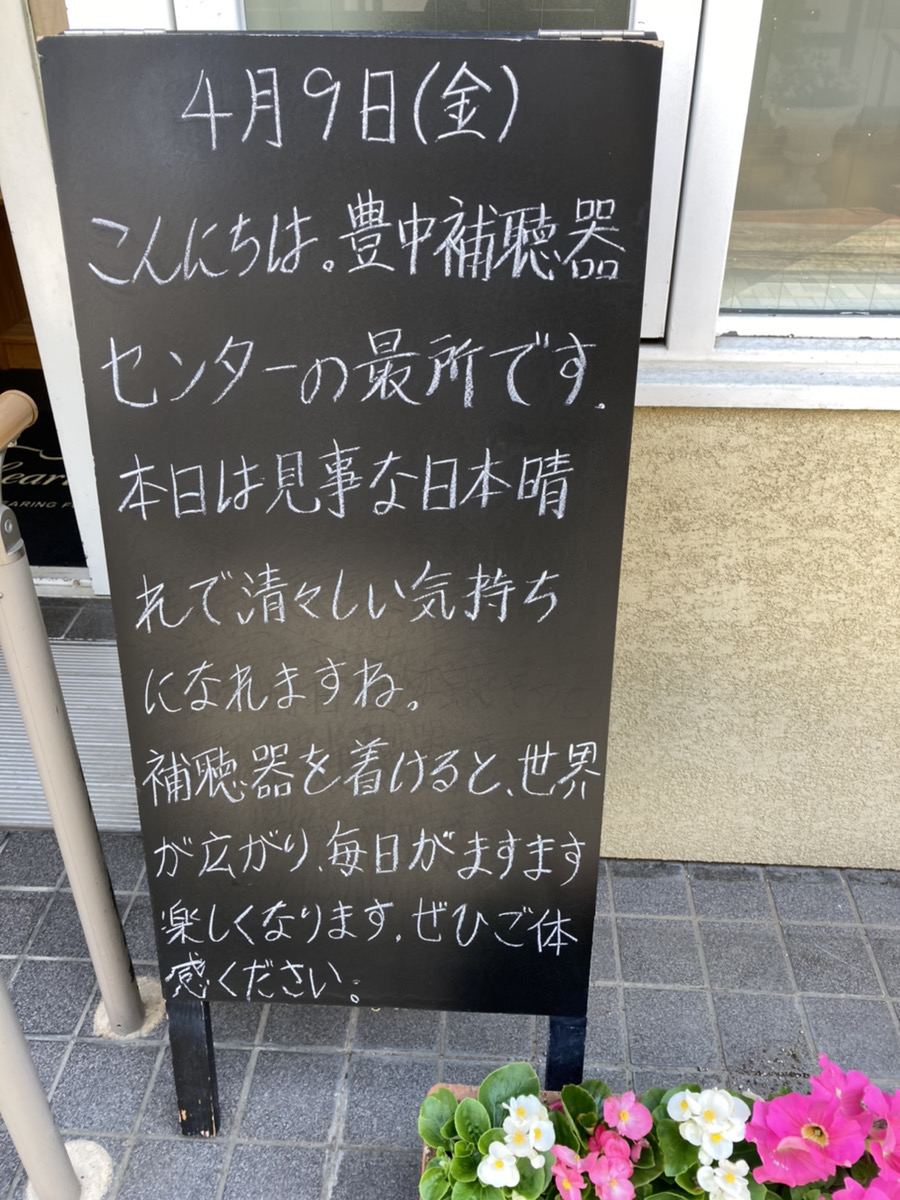 4月9日(金)
こんにちは。豊中補聴器
センターの最所です.
本日は見事な日本晴
れで清々しい気持ち
になれますね。
補聴器を着けると、世界
が広がり、毎日がますます
楽しくなります.ぜひご体
感ください。